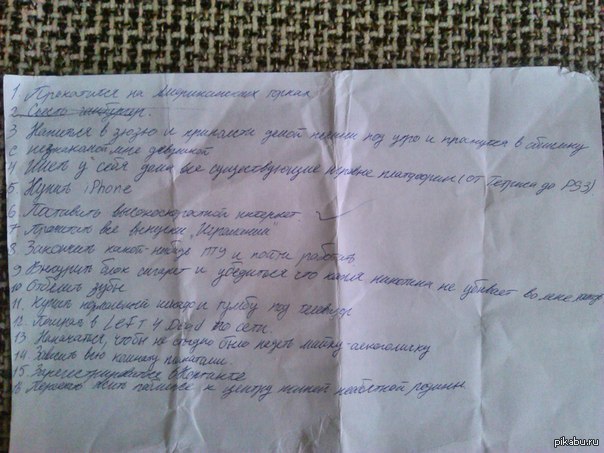 1 Прокатится на Американских горках
2 Съесть гамбургер.
3 Напится в зюзю и приполсти домой пешим под утро и проснутся в обнимку
с незнакомой мне девушкой
4 Иметь у себя дома все существующие игровые платформы (от Тетриса до PS3)
5 Купить iPhone
6 Поставить высокоскоростной интернет.
7 Прочитать все выпуски "Игромании"
8 Закончить какой-нибудь ПТУ и пойти работать
9 Выкурить блок сигарет и убедиться что капля никотина не убивает во мне
10 Отбелить зубы
11 Купить нормальный шкаф и тумбу под телевизор
12 Поиграть в Left 4 Dead по сети.
13 Накачатся, чтобы не стыдно было надеть майку-алкоголичку
14 Завесить всю комнату плакатами.
15 Зарегестрироватся Вконтакте
16 Переехать жить поближе к центру нашей необъятной родины
pikabu.ru